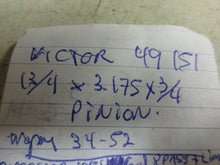 VICTOR 49151
1 3/4 x 3.175 x 3/4
PINION.
34-52